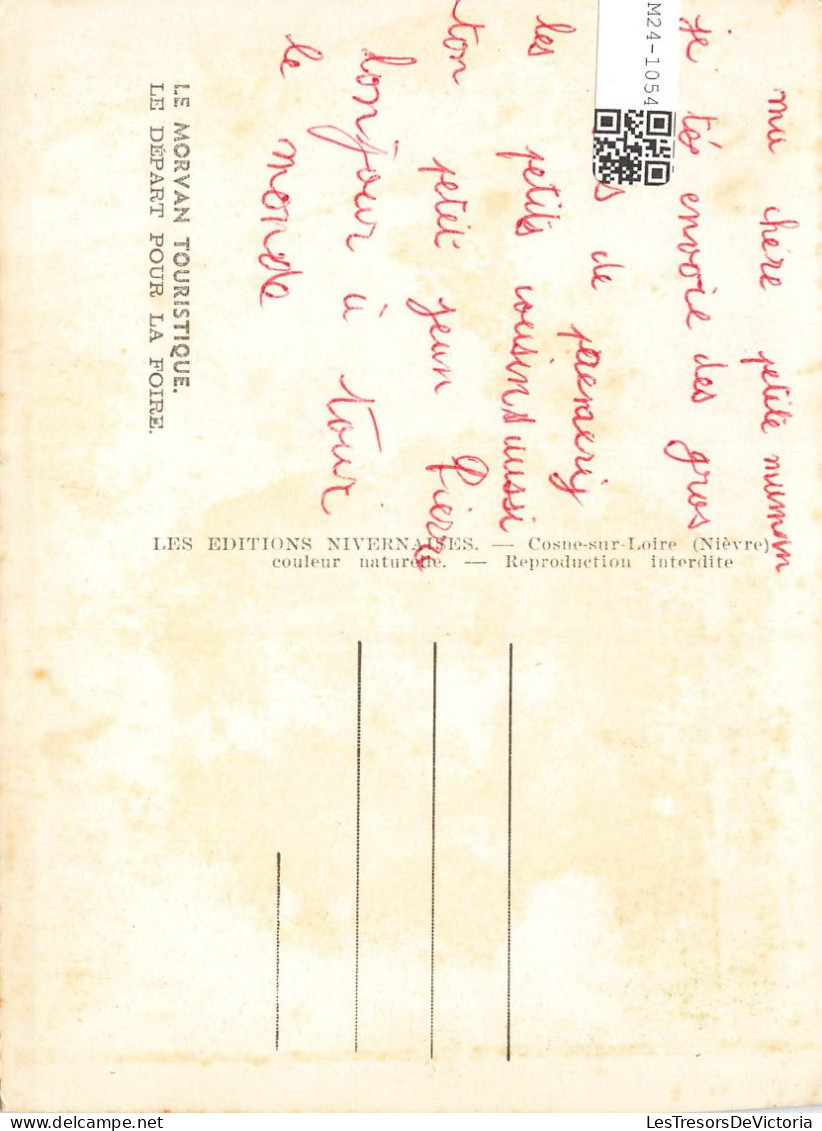 ma chère petite maman
je tés envoie des gros
s de
les petits cousins aussi
ton petit jean Pierre
bonjour à tour
le monde
LE MORVAN TOURISTIQUE.
LE DÉPART POUR LA FOIRE.
LES EDITIONS NIVERNAISES. — Cosne-sur-Loire (Nièvre)
couleur naturelle. — Reproduction interdite
M24-1054
LesTresorsDeVictoria.com